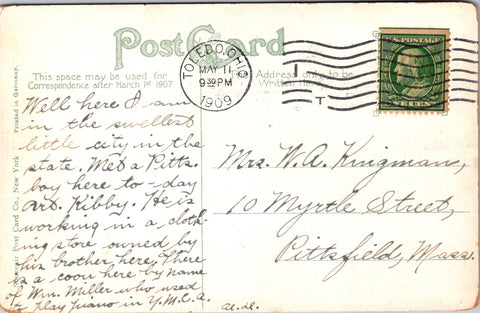 Post Card
This space may be used for
Correspondence after March 1st 1907
Address only to be
Written Here
TOLEDO, OHIO
MAY 11
9 30 PM
1909
1
T
U.S. POSTAGE
Printed in Germany.
Post Card Co., New York
Well here I am
in the swellest
little city in the
state. Met a Pitts.
boy here to-day
Art. Kibby. He is
working in a cloth-
ing store owned by
his brother here. There
is a coon here by name
of Wm. Miller who used
to play piano in Y.M.C.A.
Mrs. W. A. Kingman,
10 Myrtle Street,
Pittsfield, Mass.